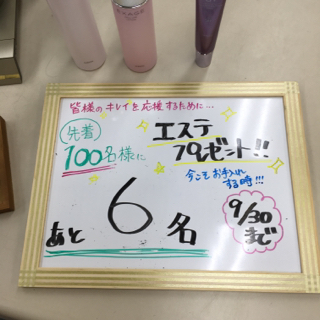 皆様のキレイを応援するために…
先着
100名様に
エステ
プレゼント!!
今こそお手入れ
する時!!!
あと 6 名
9/30
まで